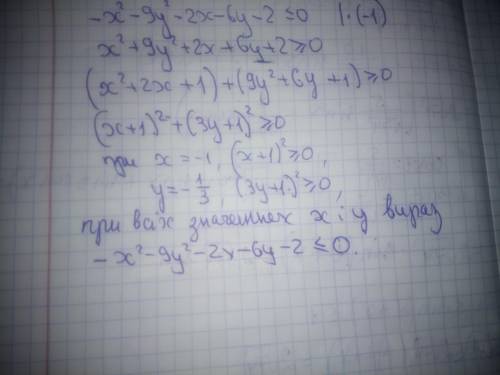 -x²-9y²-2x-6y-2≤0 |·(-1)
x²+9y²+2x+6y+2≥0
(x²+2x+1)+(9y²+6y+1)≥0
(x+1)²+(3y+1)²≥0
при x=-1, (x+1)²≥0,
y=-1/3, (3y+1)²≥0,
при всіх значеннях x і y вираз
-x²-9y²-2x-6y-2≤0.